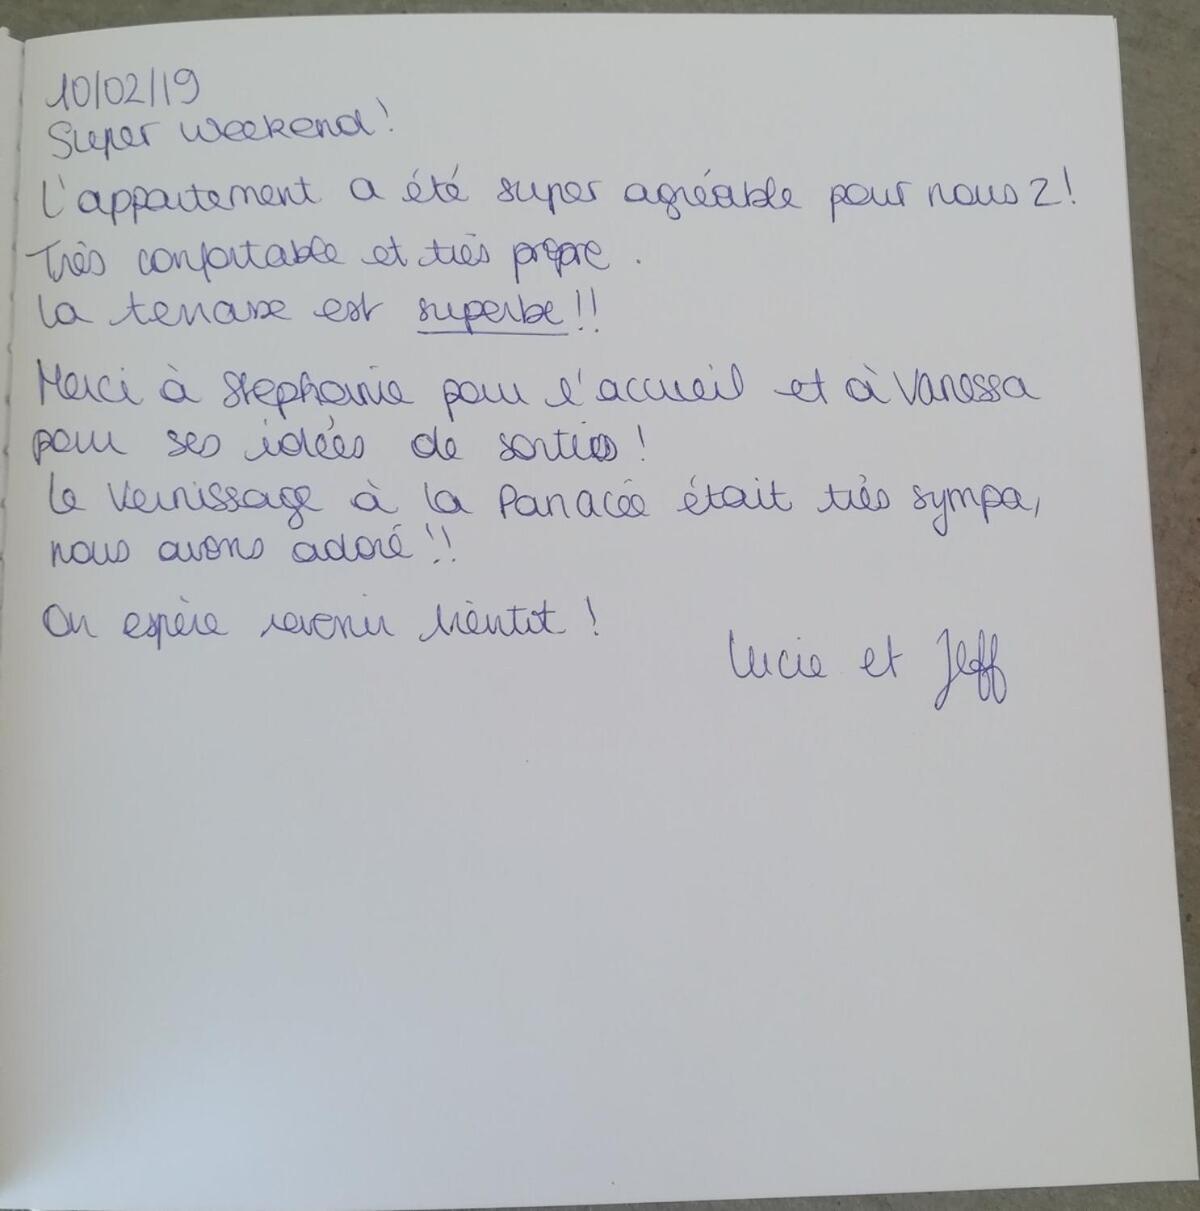 10/02/19
Super weekend!
L'appartement a été super agréable pour nous 2!
Très confortable et très propre.
La terrasse est superbe!!
Merci à Stephanie pour l'accueil et à Vanessa
pour ses idées de sorties!
Le Vernissage à la Panacée était très sympa,
nous avons adoré!!
On espère revenir bientot!
Lucie et Jeff